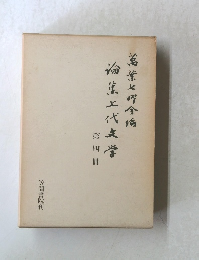 萬葉七曜会編
論集上代文学
第四冊
笠間書院刊